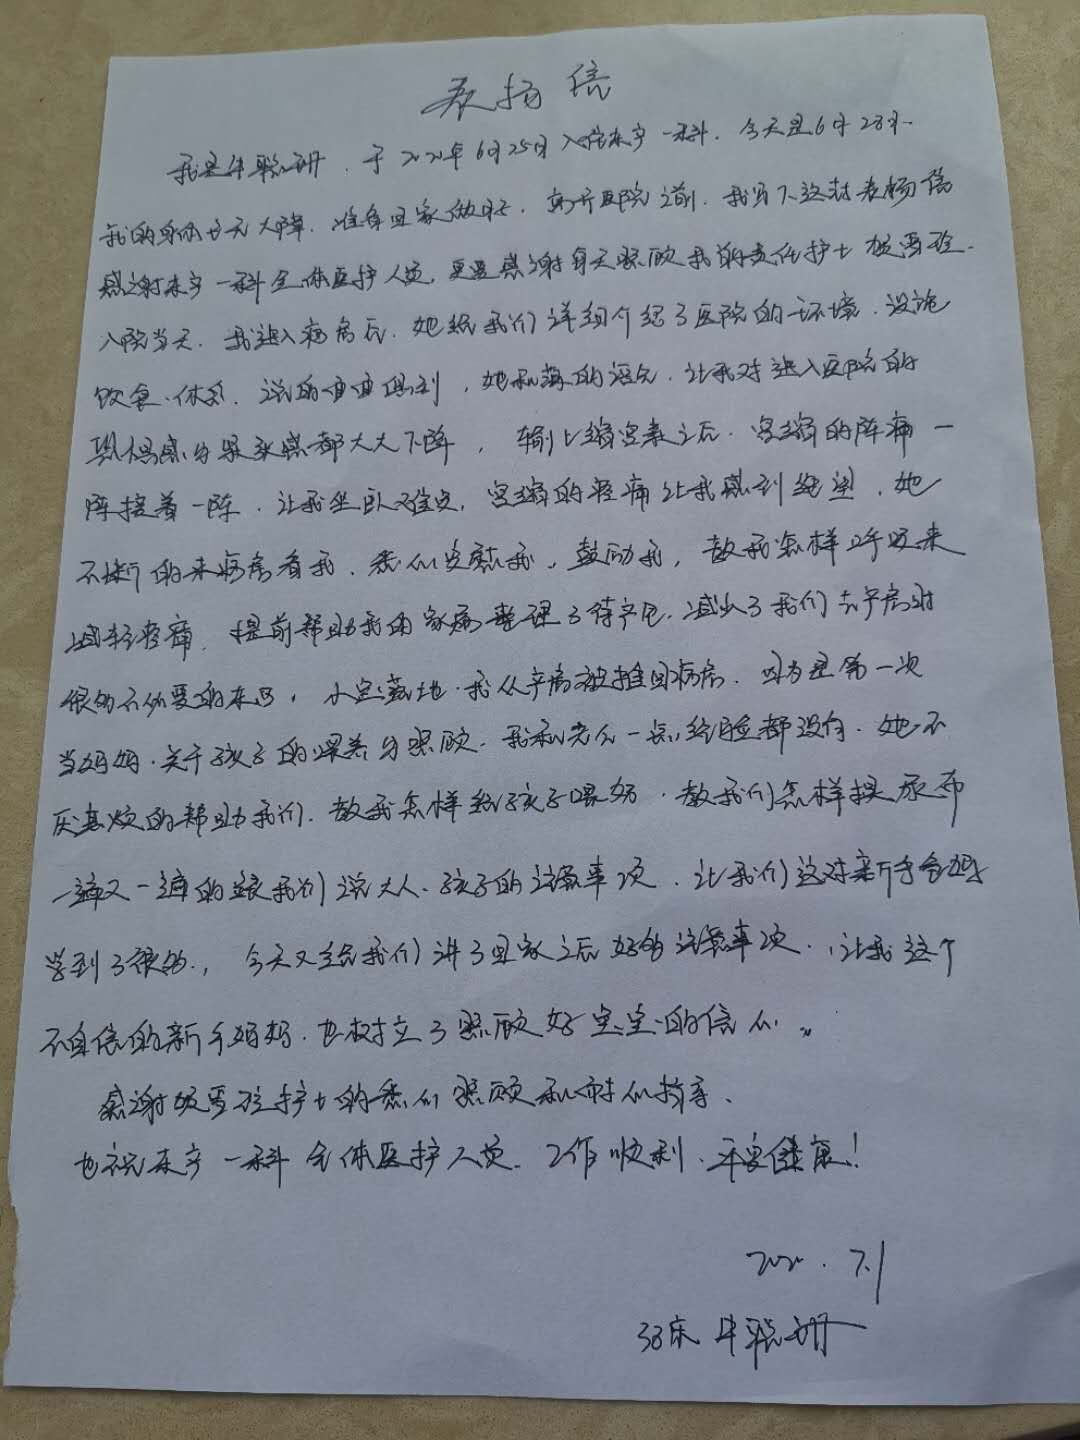 表扬信
我是牛聪珊，于2020年6月25日入住东产一科，今天是6月28日.
我的身体也无大碍，准备回家做月子，离开医院之前，我写下这封表扬信
感谢东产一科全体医护人员，更要感谢每天照顾我的责任护士
入院当天，我进入病房后，她给我们详细介绍了医院的环境、设施
饮食、休息，说的面面俱到，她和蔼的语气，让我对进入医院的
恐惧感与紧张感都大大下降，输上缩宫素之后，宫缩的阵痛一
阵接着一阵，让我坐卧难安，宫缩的疼痛让我感到绝望，她
不断的来病房看我，悉心安慰我，鼓励我，教我怎样呼吸来
减轻疼痛，提前帮助我的家属整理了待产包，减少了我们去产房时
很多不必要的东西，小宝落地，我从产房被推回病房，因为是第一次
当妈妈，关于孩子的喂养与照顾，我和老公一点经验都没有，她不
厌其烦的帮助我们，教我怎样给孩子喂奶，教我们怎样换尿布
一遍又一遍的跟我们说大人、孩子的注意事项，让我们这对新手爸妈
学到了很多，今天又给我们讲了回家之后好多注意事项，让我这个
不自信的新手妈妈，也树立了照顾好宝宝的信心。
感谢护士的悉心照顾和耐心指导，
也祝东产一科全体医护人员，工作顺利，平安健康！
2020.7.1
33床 牛聪珊